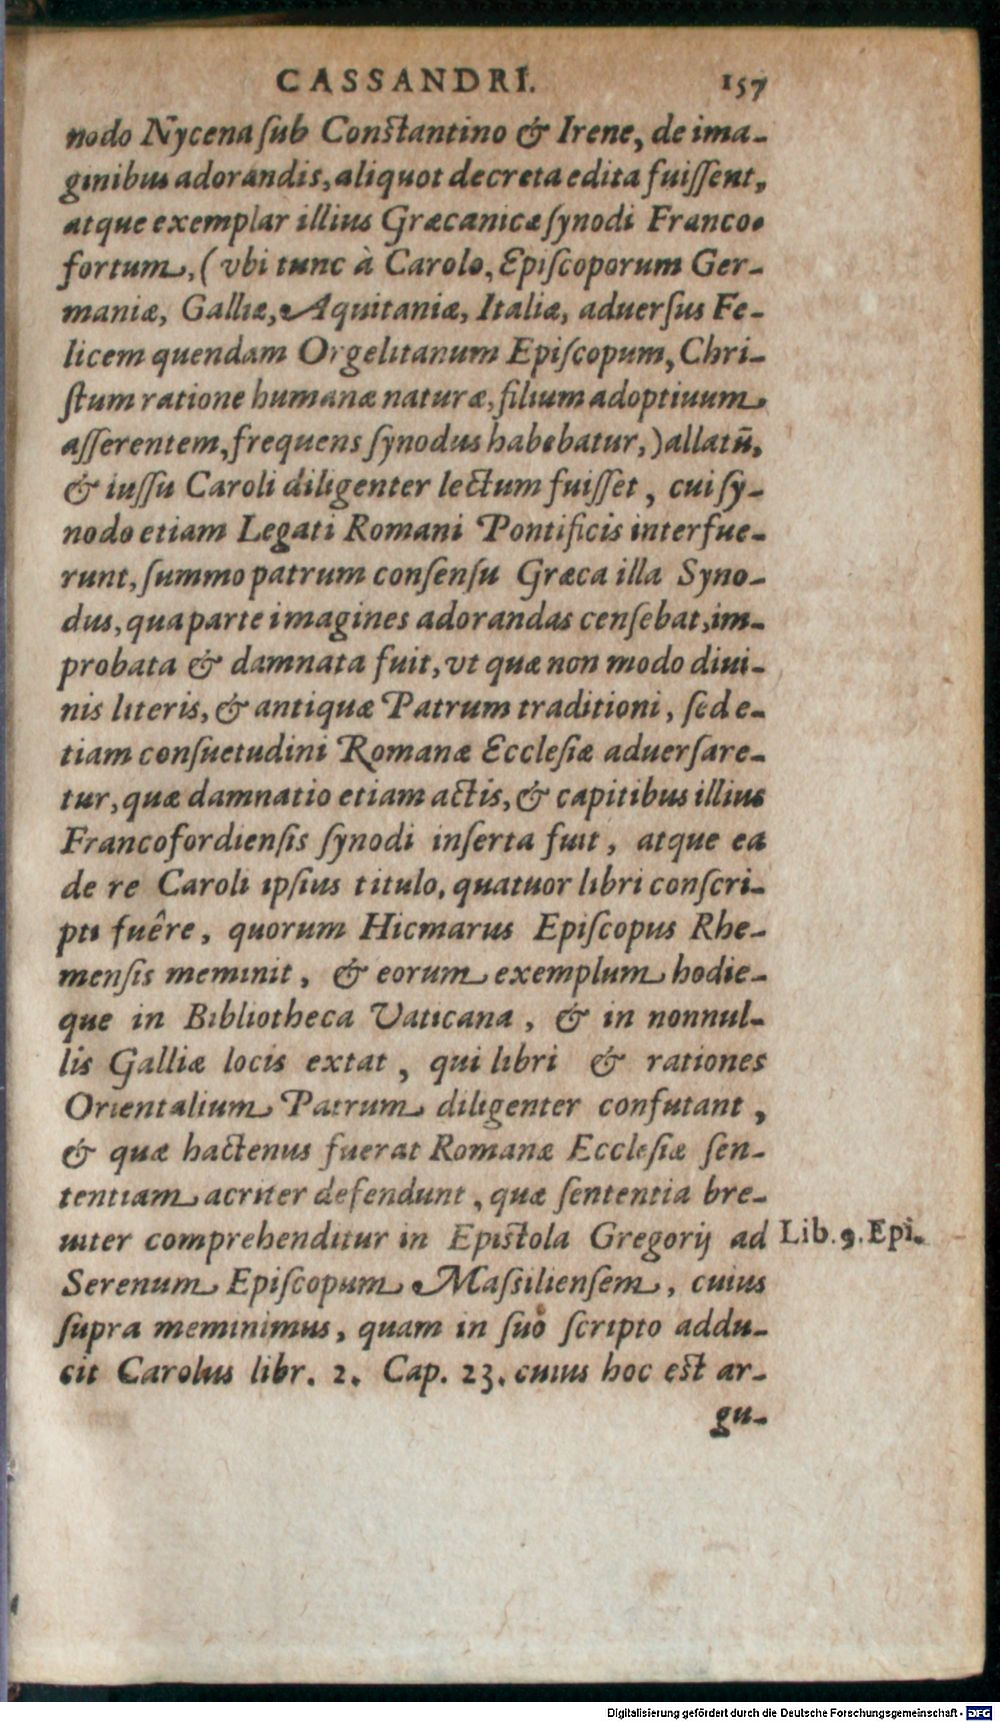 CASSANDRI. 157
nodo Nycena ſub Conſtantino & Irene, de ima-
ginibus adorandis, aliquot decreta edita fuiſſent,
atque exemplar illius Græcanicæ ſynodi Franco-
fortum, (vbi tunc à Carolo, Epiſcoporum Ger-
maniæ, Galliæ, Aquitaniæ, Italiæ, aduerſus Fe-
licem quendam Orgelitanum Epiſcopum, Chri-
ſtum ratione humanæ naturæ, filium adoptiuum
aſſerentem, frequens ſynodus habebatur,) allatũ,
& iuſſu Caroli diligenter lectum fuiſſet, cui ſy-
nodo etiam Legati Romani Pontificis interfue-
runt, ſummo patrum conſenſu Græca illa Syno-
dus, qua parte imagines adorandas cenſebat, im-
probata & damnata fuit, vt quæ non modo diui-
nis literis, & antiquæ Patrum traditioni, ſed e-
tiam conſuetudini Romanæ Eccleſiæ aduerſare-
tur, quæ damnatio etiam actis, & capitibus illius
Francofordienſis ſynodi inſerta fuit, atque ea
de re Caroli ipſius titulo, quatuor libri conſcri-
pti fuêre, quorum Hicmarus Epiſcopus Rhe-
menſis meminit, & eorum exemplum hodie-
que in Bibliotheca Vaticana, & in nonnul-
lis Galliæ locis extat, qui libri & rationes
Orientalium Patrum diligenter confutant,
& quæ hactenus fuerat Romanæ Eccleſiæ ſen-
tentiam acriter defendunt, quæ ſententia bre-
uiter comprehenditur in Epiſtola Gregorij ad
Lib. 9. Epi.
Serenum Epiſcopum Maſſilienſem, cuius
ſupra meminimus, quam in ſuo ſcripto addu-
cit Carolus libr. 2. Cap. 23. cuius hoc eſt ar-
gu-
Digitalisierung gefördert durch die Deutsche Forschungsgemeinschaft - DFG